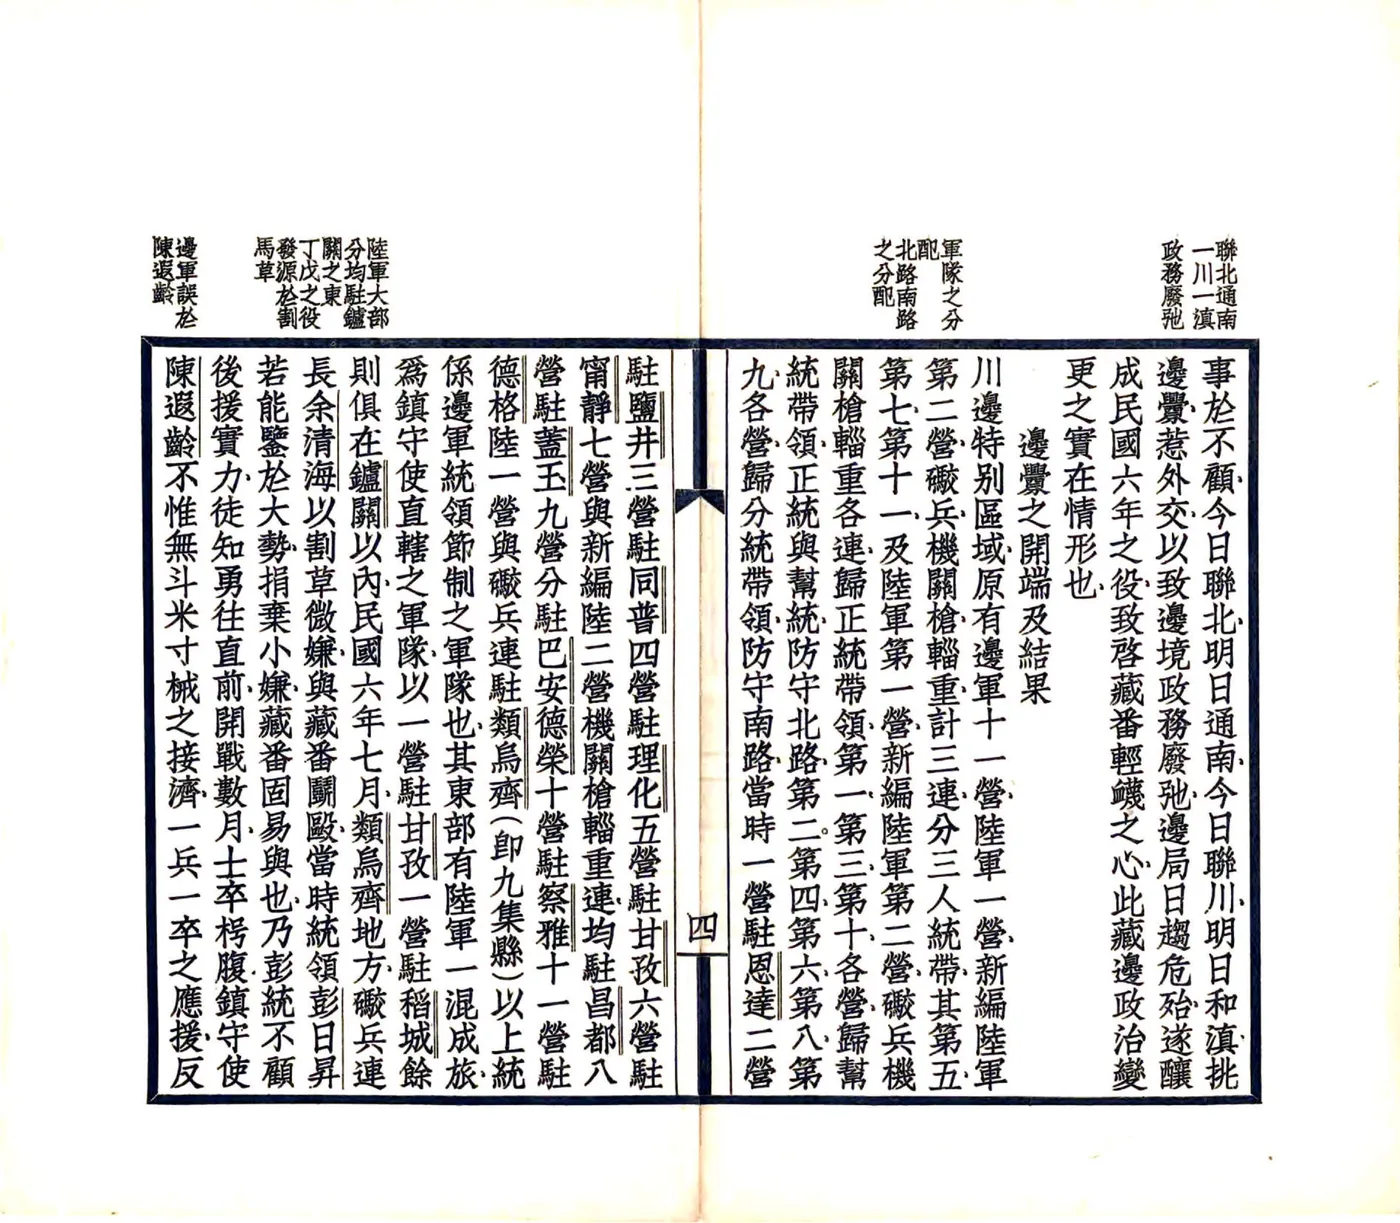 聯北通南
一川一滇
政務廢弛
軍隊之分
配
北路南路
之分配
事於不顧今日聯北明日通南今日聯川明日和滇挑
邊釁惹外交以致邊境政務廢弛邊局日趨危殆遂釀
成民國六年之役致啓藏番輕衊之心此藏邊政治變
更之實在情形也
邊釁之開端及結果
川邊特別區域原有邊軍十一營陸軍一營新編陸軍
第二營礮兵機關槍輜重計三連分三人統帶其第五
第七第十一及陸軍第一營新編陸軍第二營礮兵機
關槍輜重各連歸正統帶領第一第三第十各營歸幫
統帶領正統與幫統防守北路第二第四第六第八第
九各營歸分統帶領防守南路當時一營駐恩達二營
四
陸軍大部
分均駐鑪
關之東
丁戊之役
發源於割
馬草
邊軍誤於
陳遐齡
駐鹽井三營駐同普四營駐理化五營駐甘孜六營駐
甯靜七營與新編陸二營機關槍輜重連均駐昌都八
營駐蓋玉九營分駐巴安德榮十營駐察雅十一營駐
德格陸一營與礮兵連駐類烏齊(即九集縣)以上統
係邊軍統領節制之軍隊也其東部有陸軍一混成旅
爲鎮守使直轄之軍隊以一營駐甘孜一營駐稻城餘
則俱在鑪關以內民國六年七月類烏齊地方礮兵連
長余清海以割草微嫌與藏番鬬毆當時統領彭日昇
若能鑒於大勢捐棄小嫌藏番固易與也乃彭統不顧
後援實力徒知勇往直前開戰數月士卒枵腹鎮守使
陳遐齡不惟無斗米寸械之接濟一兵一卒之應援反